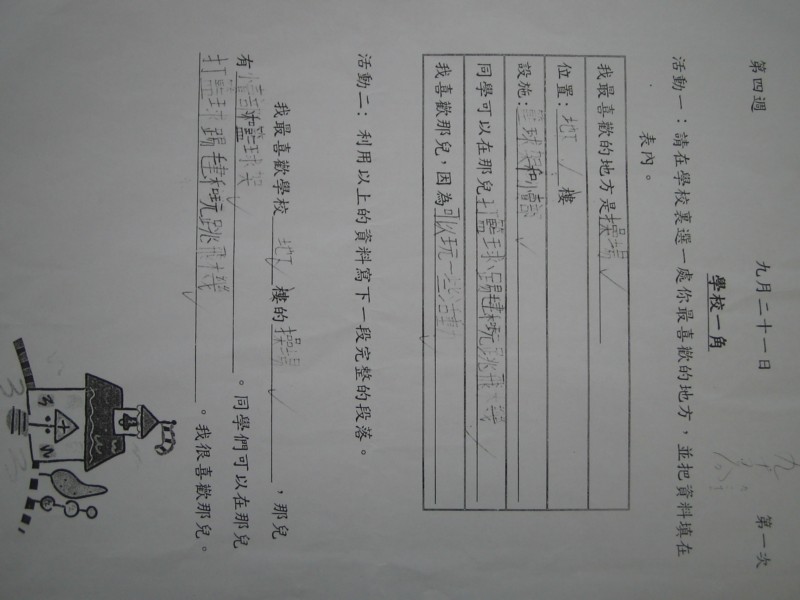 第四週 九月二十一日 第一次
學校一角
活動一：請在學校裏選一處你最喜歡的地方，並把資料填在
表內。
我最喜歡的地方是操場
位置：地下樓
設施：籃球架和
同學可以在那兒打籃球踢毽和玩跳飛機
我喜歡那兒，因為可以玩一些活動
活動二：利用以上的資料寫下一段完整的段落。
我最喜歡學校地下樓的操場，那兒
有籃球架。同學們可以在那兒
打籃球踢毽和玩跳飛機。我很喜歡那兒。